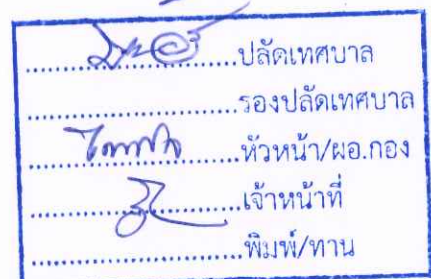 ....................ปลัดเทศบาล
....................รองปลัดเทศบาล
....................หัวหน้า/ผอ.กอง
....................เจ้าหน้าที่
....................พิมพ์/ทาน